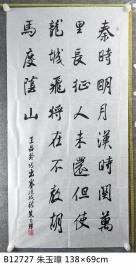 秦時明月漢時關萬
里長征人未還但使
龍城飛將在不教胡
馬度陰山
王昌齡詩出塞
B12727 朱玉璋 138×69cm